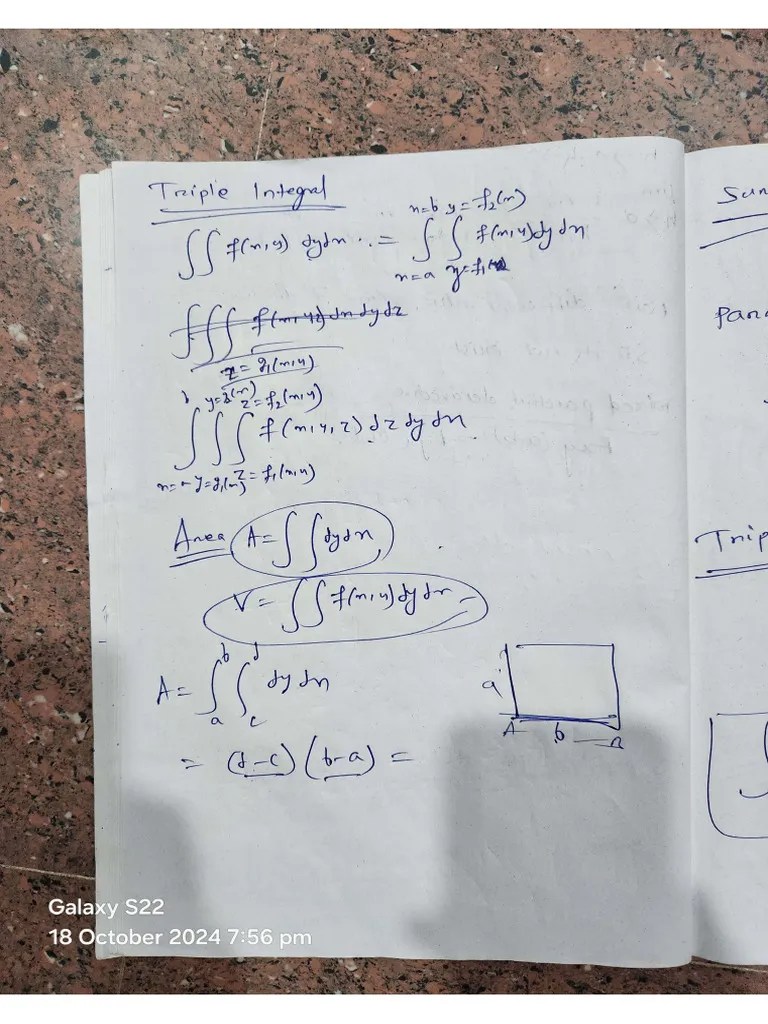 Triple Integral
∬ f(x,y) dydx ..= ∫_{x=a}^{x=b} ∫_{y=f₁(x)}^{y=f₂(x)} f(x,y)dy dx
∭ f(x,y,z) dx dy dz
z = g₁(x,y)
∫_{x=} ∫_{y=g₁(x)}^{y=g(x)} ∫_{z=f₁(x,y)}^{z=f₂(x,y)} f(x,y,z) dz dy dx
Area A = ∫∫ dy dx
V = ∫∫ f(x,y) dy dx
A = ∫_a^b ∫_c^d dy dx
= (d-c) (b-a) =
a
A b B
Trip
Galaxy S22
18 October 2024 7:56 pm